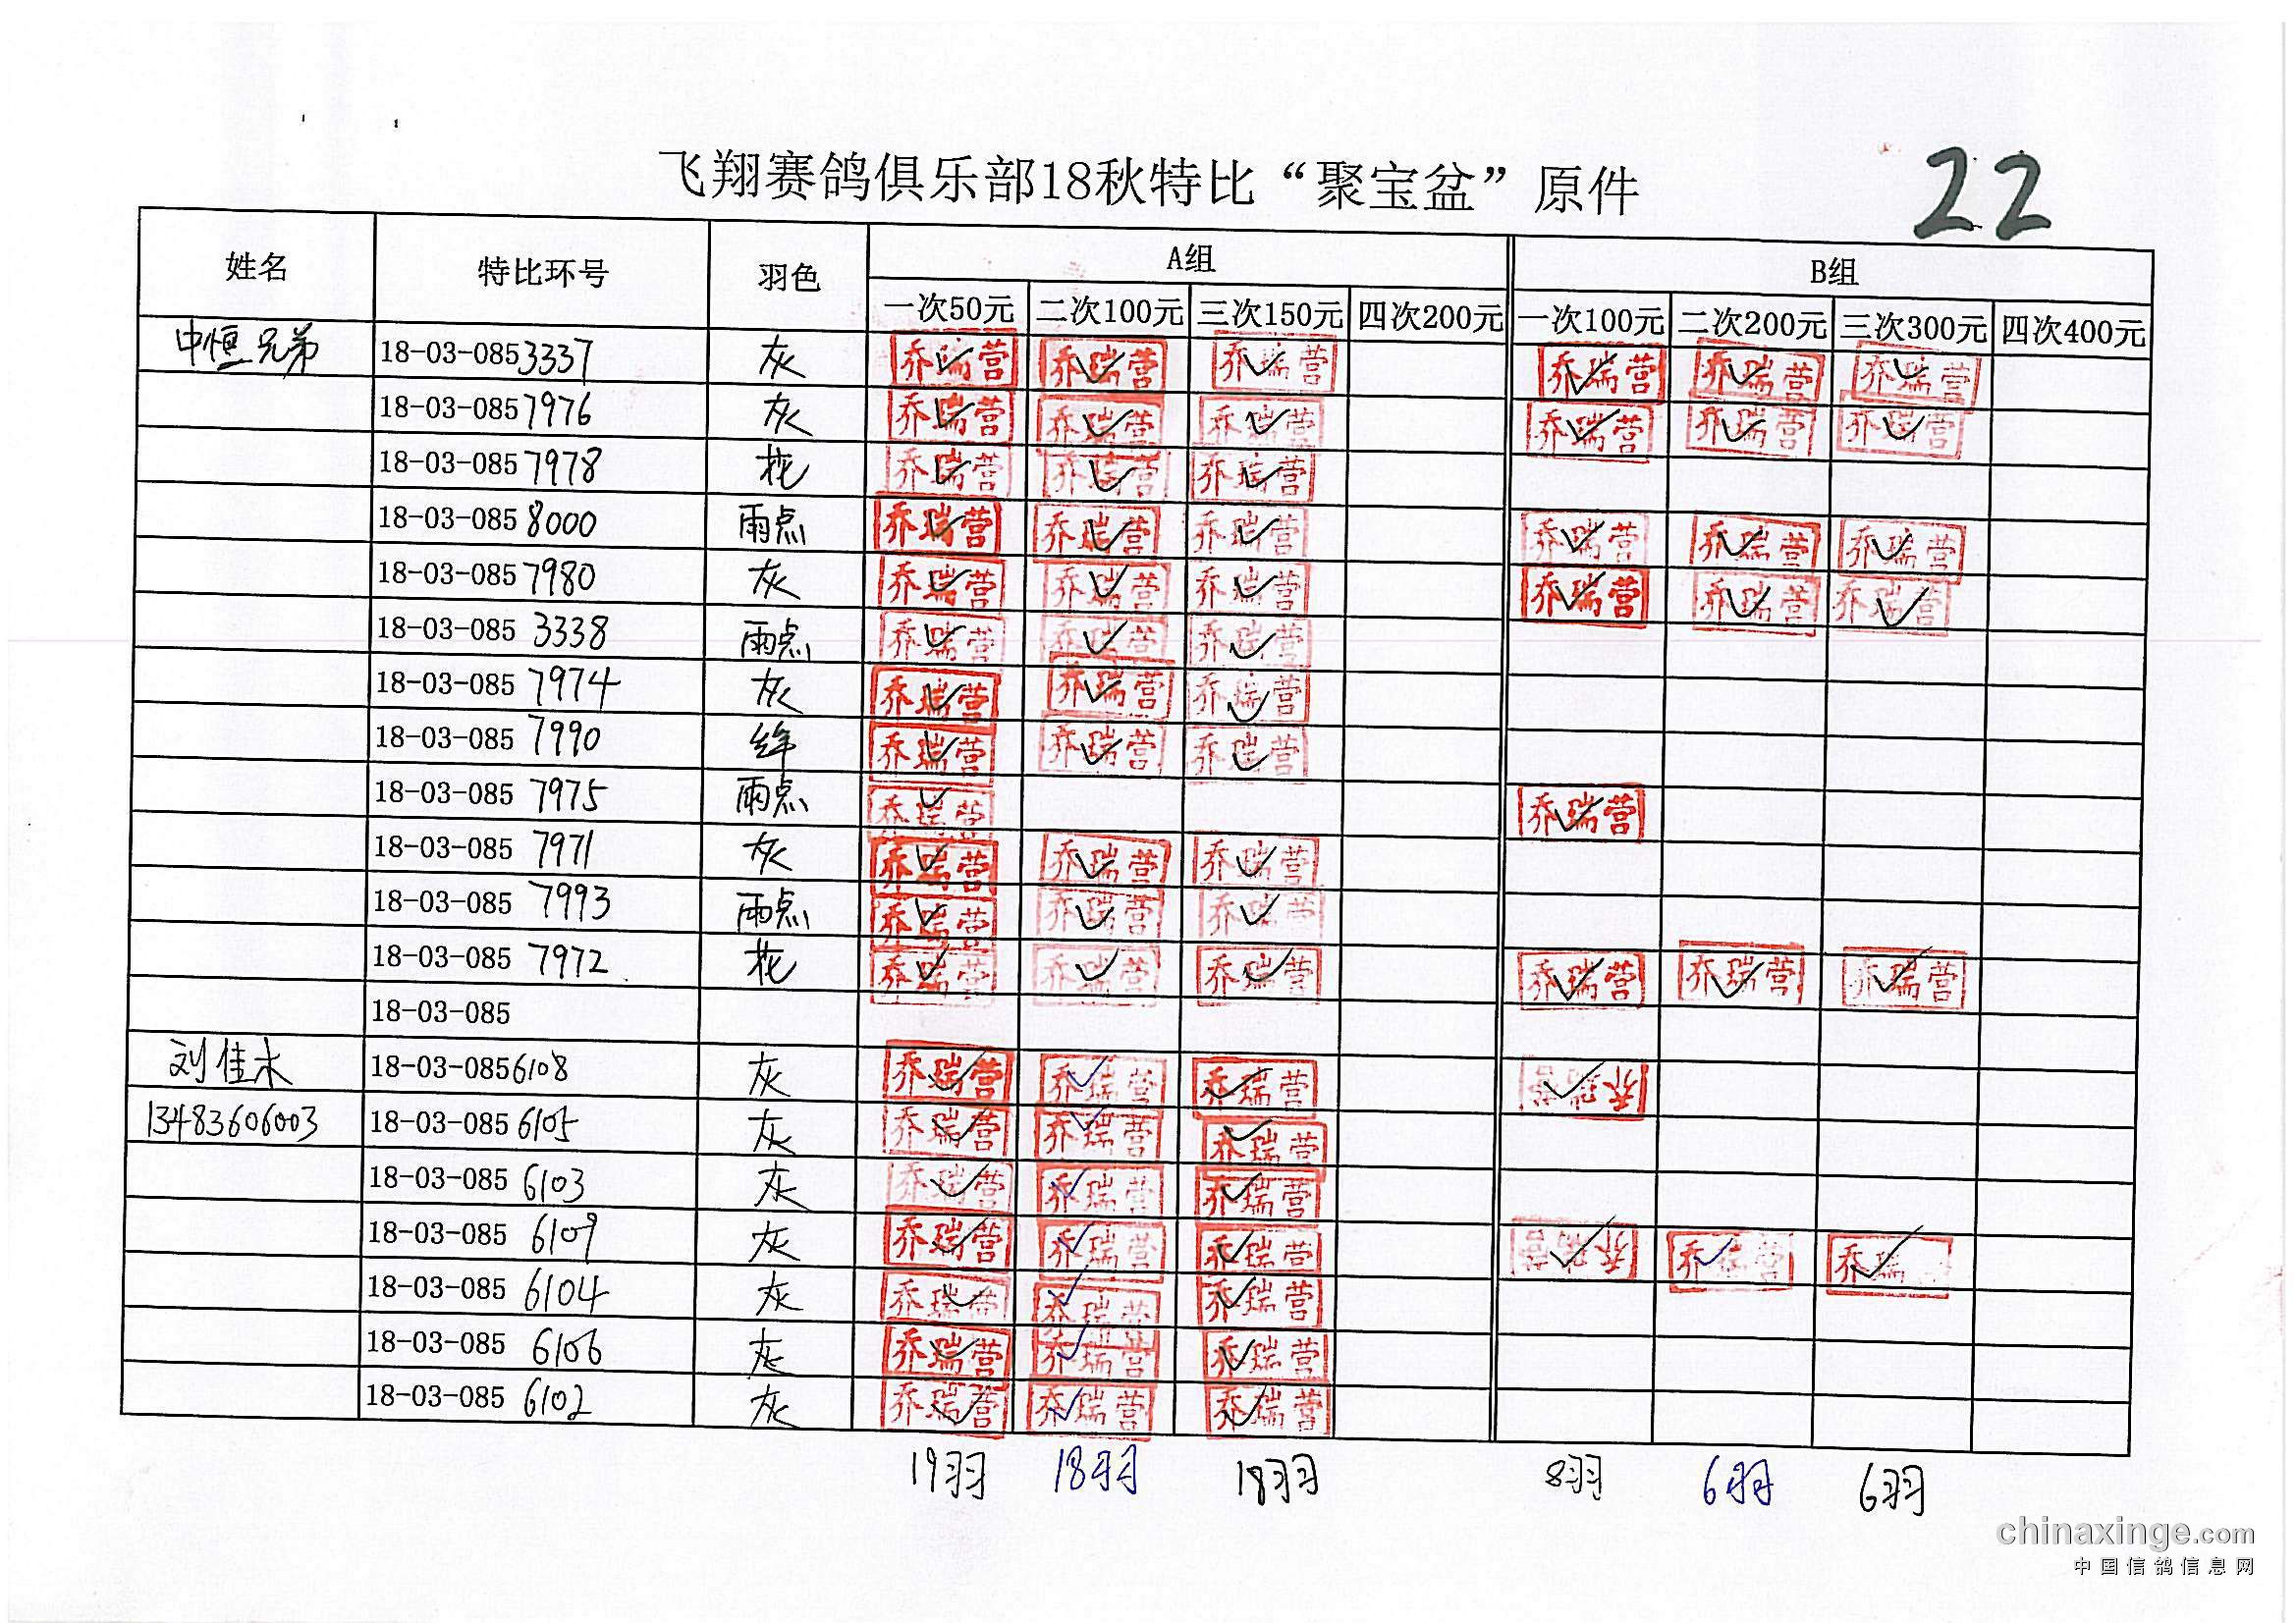 飞翔赛鸽俱乐部18秋特比“聚宝盆”原件 22
姓名 特比环号 羽色 A组 B组
一次50元 二次100元 三次150元 四次200元 一次100元 二次200元 三次300元 四次400元
中恒兄弟 18-03-0853337 灰 乔瑞营 乔瑞营 乔瑞营 乔瑞营 乔瑞营 乔瑞营
18-03-0857976 灰 乔瑞营 乔瑞营 乔瑞营 乔瑞营 乔瑞营 乔瑞营
18-03-0857978 花 乔瑞营 乔瑞营 乔瑞营
18-03-0858000 雨点 乔瑞营 乔瑞营 乔瑞营 乔瑞营 乔瑞营 乔瑞营
18-03-0857980 灰 乔瑞营 乔瑞营 乔瑞营 乔瑞营 乔瑞营 乔瑞营
18-03-0853338 雨点 乔瑞营 乔瑞营 乔瑞营
18-03-0857974 灰 乔瑞营 乔瑞营 乔瑞营
18-03-0857990 绛 乔瑞营 乔瑞营 乔瑞营
18-03-0857975 雨点 乔瑞营 乔瑞营
18-03-0857971 灰 乔瑞营 乔瑞营 乔瑞营
18-03-0857993 雨点 乔瑞营 乔瑞营 乔瑞营
18-03-0857972 花 乔瑞营 乔瑞营 乔瑞营 乔瑞营 乔瑞营 乔瑞营
18-03-085
刘佳木 18-03-0856108 灰 乔瑞营 乔瑞营 乔瑞营 乔瑞营
13483606003 18-03-0856105 灰 乔瑞营 乔瑞营 乔瑞营
18-03-0856103 灰 乔瑞营 乔瑞营 乔瑞营
18-03-0856109 灰 乔瑞营 乔瑞营 乔瑞营 乔瑞营 乔瑞营 乔瑞
18-03-0856104 灰 乔瑞营 乔瑞营 乔瑞营
18-03-0856106 灰 乔瑞营 乔瑞营 乔瑞营
18-03-0856102 灰 乔瑞营 乔瑞营 乔瑞营
19羽 18羽 18羽 8羽 6羽 6羽
chinaxinge.com
中国信鸽信息网